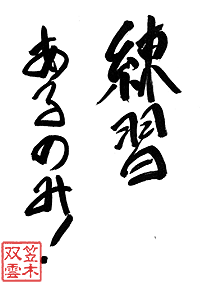 練習
あるのみ!
笠木
双雲